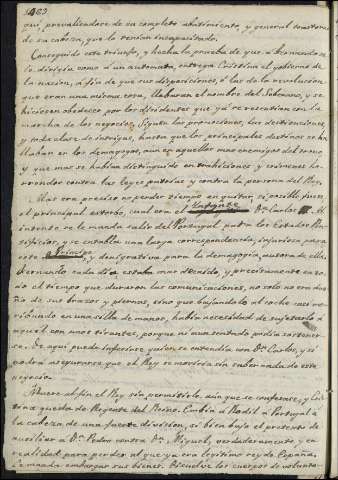 qui, prevaliendose de su completo abatimiento, y general trastorno
de su cabeza, que lo tenian incapacitado.
Conseguido este triunfo, y hecha la prueba de que a Fernando se
lo dirigia como á un automata, entrega Cristina el gobierno de
la nacion, á fin de que sus disposiciones, ó las de la revolucion
que eran una misma cosa, llevaran el nombre del Soberano, y se
hiciesen obedecer, por los disidentes que ya se resentian con la
marcha de los negocios. Siguen las promociones, las destituciones,
y toda clase de intrigas, hasta que los principales destinos se ha-
llaban en los demagogos, aun en aquellos mas enemigos del trono
y que mas se habian distinguido en traiciones y crimenes ho-
rrorosos contra las leyes patrias y contra la persona del Rey.
Mas era preciso no perder tiempo en quitar si posible fuese
el principal estorbo, cual era el Dn. Carlos. Al
intento se le manda salir del Portugal para los Estados Pon-
tificios, y se entabla una larga correspondencia, infructuosa para
este Principe, y denigrativa para la demagogia, autora de ella.
Fernando cada dia estaba mas decaido, y precisamente en to-
do el tiempo que duraron las comunicaciones, no solo no era due-
ño de sus brazos y piernas, sino que bajandolo al coche casi mo-
ribundo en una silla de manos, habia necesidad de sujetarlo á
aquel con unos tirantes, porque ni aun sentado podia sostener-
se. De aqui puede inferirse quien se entendia con Dn. Carlos, y si
podrá asegurarse que el Rey se moriria sin saber nada de este
negocio.
Muere al fin el Rey sin permitirle aun que se confesase, y Cris-
tina queda de Regente del Reino. Embia á Rodil á Portugal á
la cabeza de una fuerte division, si bien bajo el pretesto de
auxiliar á Dn. Pedro contra Dn. Miguel, verdaderamente y en
realidad para perder al que ya era legitimo rey de España.
Le manda embargar sus bienes. Disuelve los cuerpos de volunta-